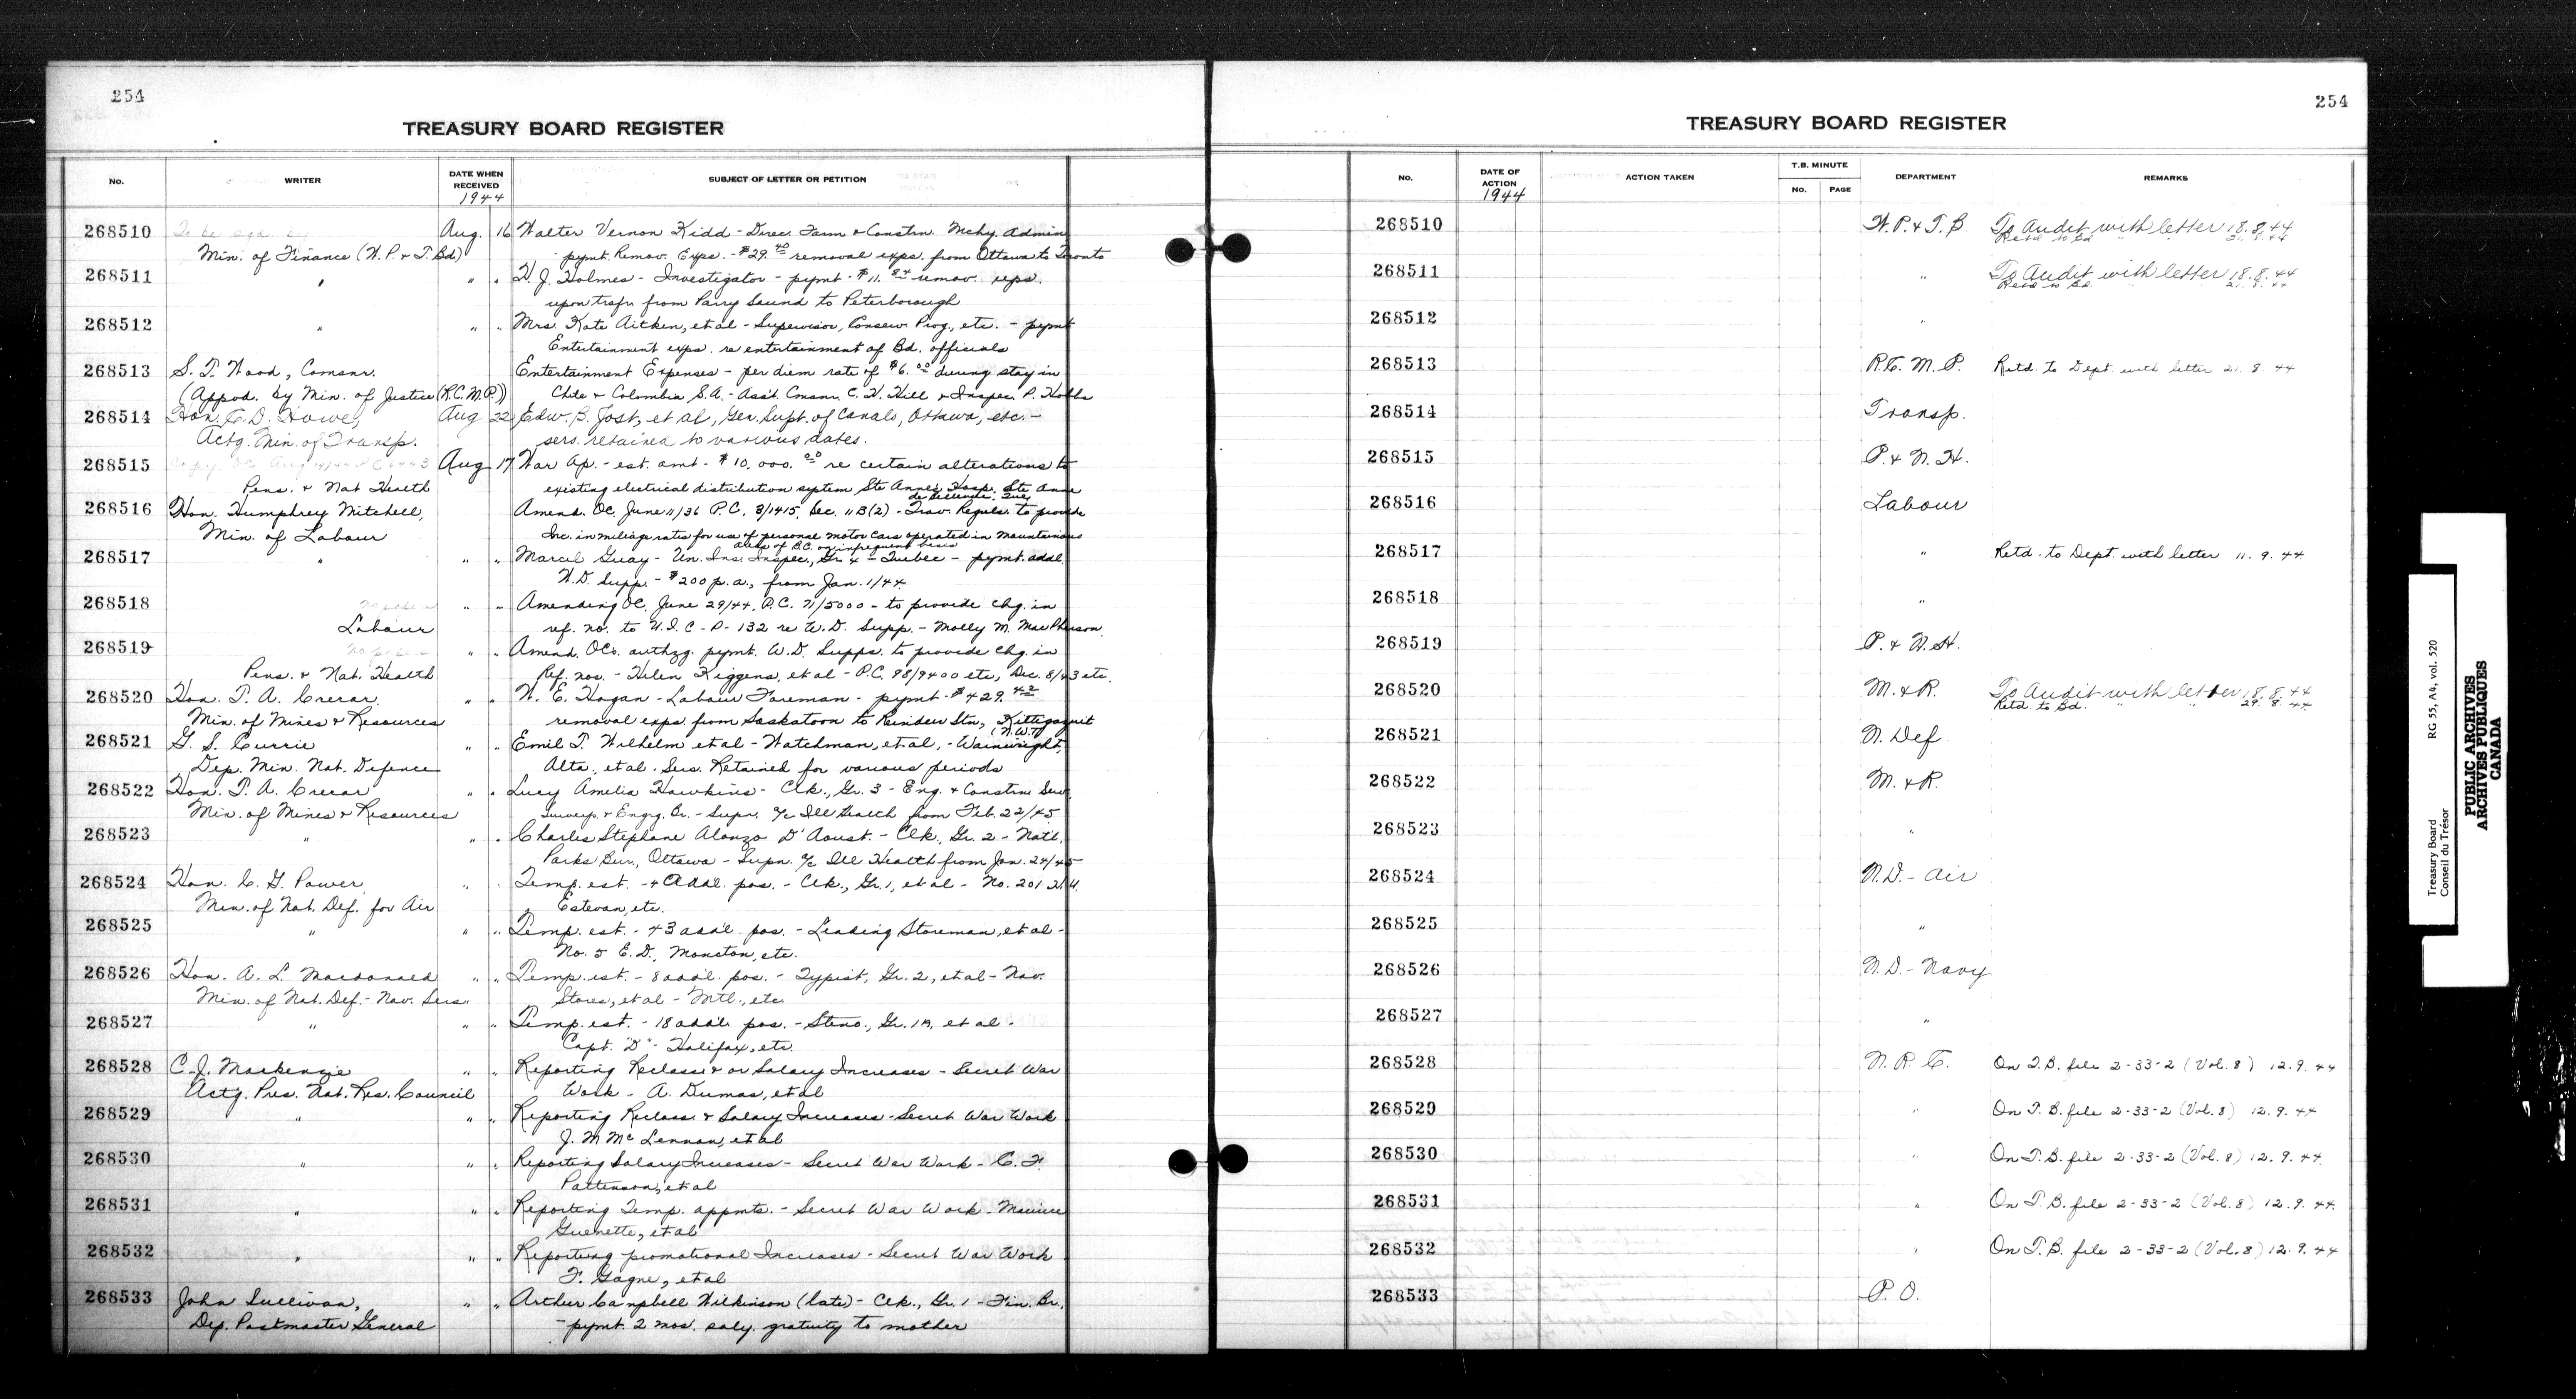 254
TREASURY BOARD REGISTER
No. WRITER DATE WHEN RECEIVED 1944 SUBJECT OF LETTER OR PETITION
268510 To be sgd. by Aug. 16 Walter Vernon Kidd - Direc. Farm & Constrn. Mchy. Admin
Min. of Finance (W.P. & T. Bd) pymt. Remov. Exps. - $29.40 removal exps. from Ottawa to Toronto
268511 " " " H. J. Holmes - Investigator - pymt - $11.84 remov. exps.
upon trafr. from Parry Sound to Peterborough
268512 " " " Mrs. Kate Aitken, et al - Supervisor, Conserv. Prog., etc. - pymt
Entertainment exps. re entertainment of Bd. officials
268513 S. T. Wood, Comsnr. Entertainment Expenses - per diem rate of $6.00 during stay in
(Appod. by Min. of Justice (R.C.M.P.)) Chile & Colombia S.A. - Ass't. Comsnr. C. H. Hill & Inspec. P. Hobbs
268514 Hon. C. D. Howe, Aug 22 Edw. B. Jost, et al, Gen. Supt. of Canals, Ottawa, etc. -
Actg. Min. of Transp. sers. retained to various dates.
268515 Copy OC Aug Aug 17 War Ap. - est. amt - $10,000.00 re certain alterations to
Pens. & Nat Health existing electrical distribution system Ste Anne's Hosp. Ste Anne
de Bellevue, Que.
268516 Hon. Humphrey Mitchell, Amend. OC. June 11/36 P.C. 3/1415, Sec. 11B(2) - Trav. Reguls. to provide
Min. of Labour Inc. in mileage rates for use of personal motor cars operated in mountainous
area of B.C. on infrequent basis
268517 " " " Marcel Guay - Un. Ins. Inspec., Gr. 4 - Quebec - pymt. addl.
W.D. Supp. - $200 p.a., from Jan. 1/44.
268518 No paper " " Amending OC. June 29/44. P.C. 71/5000 - to provide chg. in
Labour ref. no. to U.I.C - P - 132 re W.D. Supp. - Molly M. MacPherson.
268519 No paper " " Amend. OCs. authzg. pymt. W.D. Supps. to provide chg. in
Pens. & Nat. Health Ref. nos. - Helen Kiggens, et al - P.C. 98/9400 etc, Dec. 8/43 etc.
268520 Hon. T. A. Crerar, " " W. E. Hogan - Labour Foreman - pymt - $429.42
Min. of Mines & Resources removal exps. from Saskatoon to Reindeer Stn., Kittigazuit
(N.W.T.)
268521 G. S. Currie " " Emil T. Wilhelm et al - Watchman, et al, - Wainwright,
Dep. Min. Nat. Defence Alta., et al - Sers. Retained for various periods
268522 Hon. T. A. Crerar " " Lucy Amelia Hawkins - Clk., Gr. 3 - Eng. & Constrn Serv.
Min. of Mines & Resources Surveys & Engrg. Br. - Supn. a/c Ill Health from Feb. 22/45
268523 " " " Charles Stephane Alonzo D'Aoust. - Clk., Gr. 2 - Natl.
Parks Bur., Ottawa - Supn. a/c Ill Health from Jan. 24/45
268524 Hon. C. G. Power, " " Temp. est. - 4 Addl. pos. - Clk., Gr. 1, et al - No. 201 H.U.
Min. of Nat. Def. for Air Estevan, etc.
268525 " " " Temp. est. - 43 addl. pos. - Leading Storeman, et al -
No. 5 E.D., Moncton, etc.
268526 Hon. A. L. Macdonald " " Temp. est. - 8 addl. pos. - Typist, Gr. 2, et al - Nav.
Min. of Nat. Def. - Nav. Sers. Stores, et al - Mtl., etc.
268527 " " " Temp. est. - 18 addl. pos. - Steno., Gr. 1A, et al -
Capt. "D" - Halifax, etc.
268528 C. J. Mackenzie " " Reporting Reclass & or Salary Increases - Secret War
Actg. Pres. Nat. Res. Council Work - A. Dumas, et al
268529 " " " Reporting Reclass. & Salary Increases - Secret War Work
J. M McLennan, et al
268530 " " " Reporting Salary Increases - Secret War Work - C. F.
Pattenson, et al
268531 " " " Reporting Temp. appmts. - Secret War Work - Maurice
Guenette, et al
268532 " " " Reporting promotional Increases - Secret War Work
F. Gagne, et al
268533 John Sullivan, " " Arthur Campbell Wilkinson (late) - Clk., Gr. 1 - Fin. Br.
Dep. Postmaster General - pymt. 2 mos. saly. gratuity to mother
254
TREASURY BOARD REGISTER
No. DATE OF ACTION 1944 ACTION TAKEN T.B. MINUTE No. PAGE DEPARTMENT REMARKS
268510 W.P. & T.B To Audit with letter 18.8.44
Retd to Bd " " 21.8.44
268511 " To Audit with letter 18.8.44
Retd to Bd " 21.8.44
268512 "
268513 R.C.M.P. Retd. to Dept. with letter 21.8.44
268514 Transp.
268515 P. & N.H.
268516 Labour
268517 " Retd. to Dept. with letter 11.9.44.
268518 "
268519 P. & N.H.
268520 M. & R. To Audit with letter 18.8.44
Retd. to Bd. " " 29.8.44.
268521 N. Def
268522 M. & R.
268523 "
268524 N.D. - Air
268525 "
268526 N.D. - Navy
268527 "
268528 N.R.C. On T.B. file 2-33-2 (Vol. 8) 12.9.44
268529 " On T.B. file 2-33-2 (Vol. 8) 12.9.44
268530 " On T.B. file 2-33-2 (Vol. 8) 12.9.44.
268531 " On T.B. file 2-33-2 (Vol. 8) 12.9.44.
268532 " On T.B. file 2-33-2 (Vol. 8) 12.9.44
268533 P.O.
Treasury Board RG 55, A4, vol. 520
Conseil du Trésor
PUBLIC ARCHIVES
ARCHIVES PUBLIQUES
CANADA